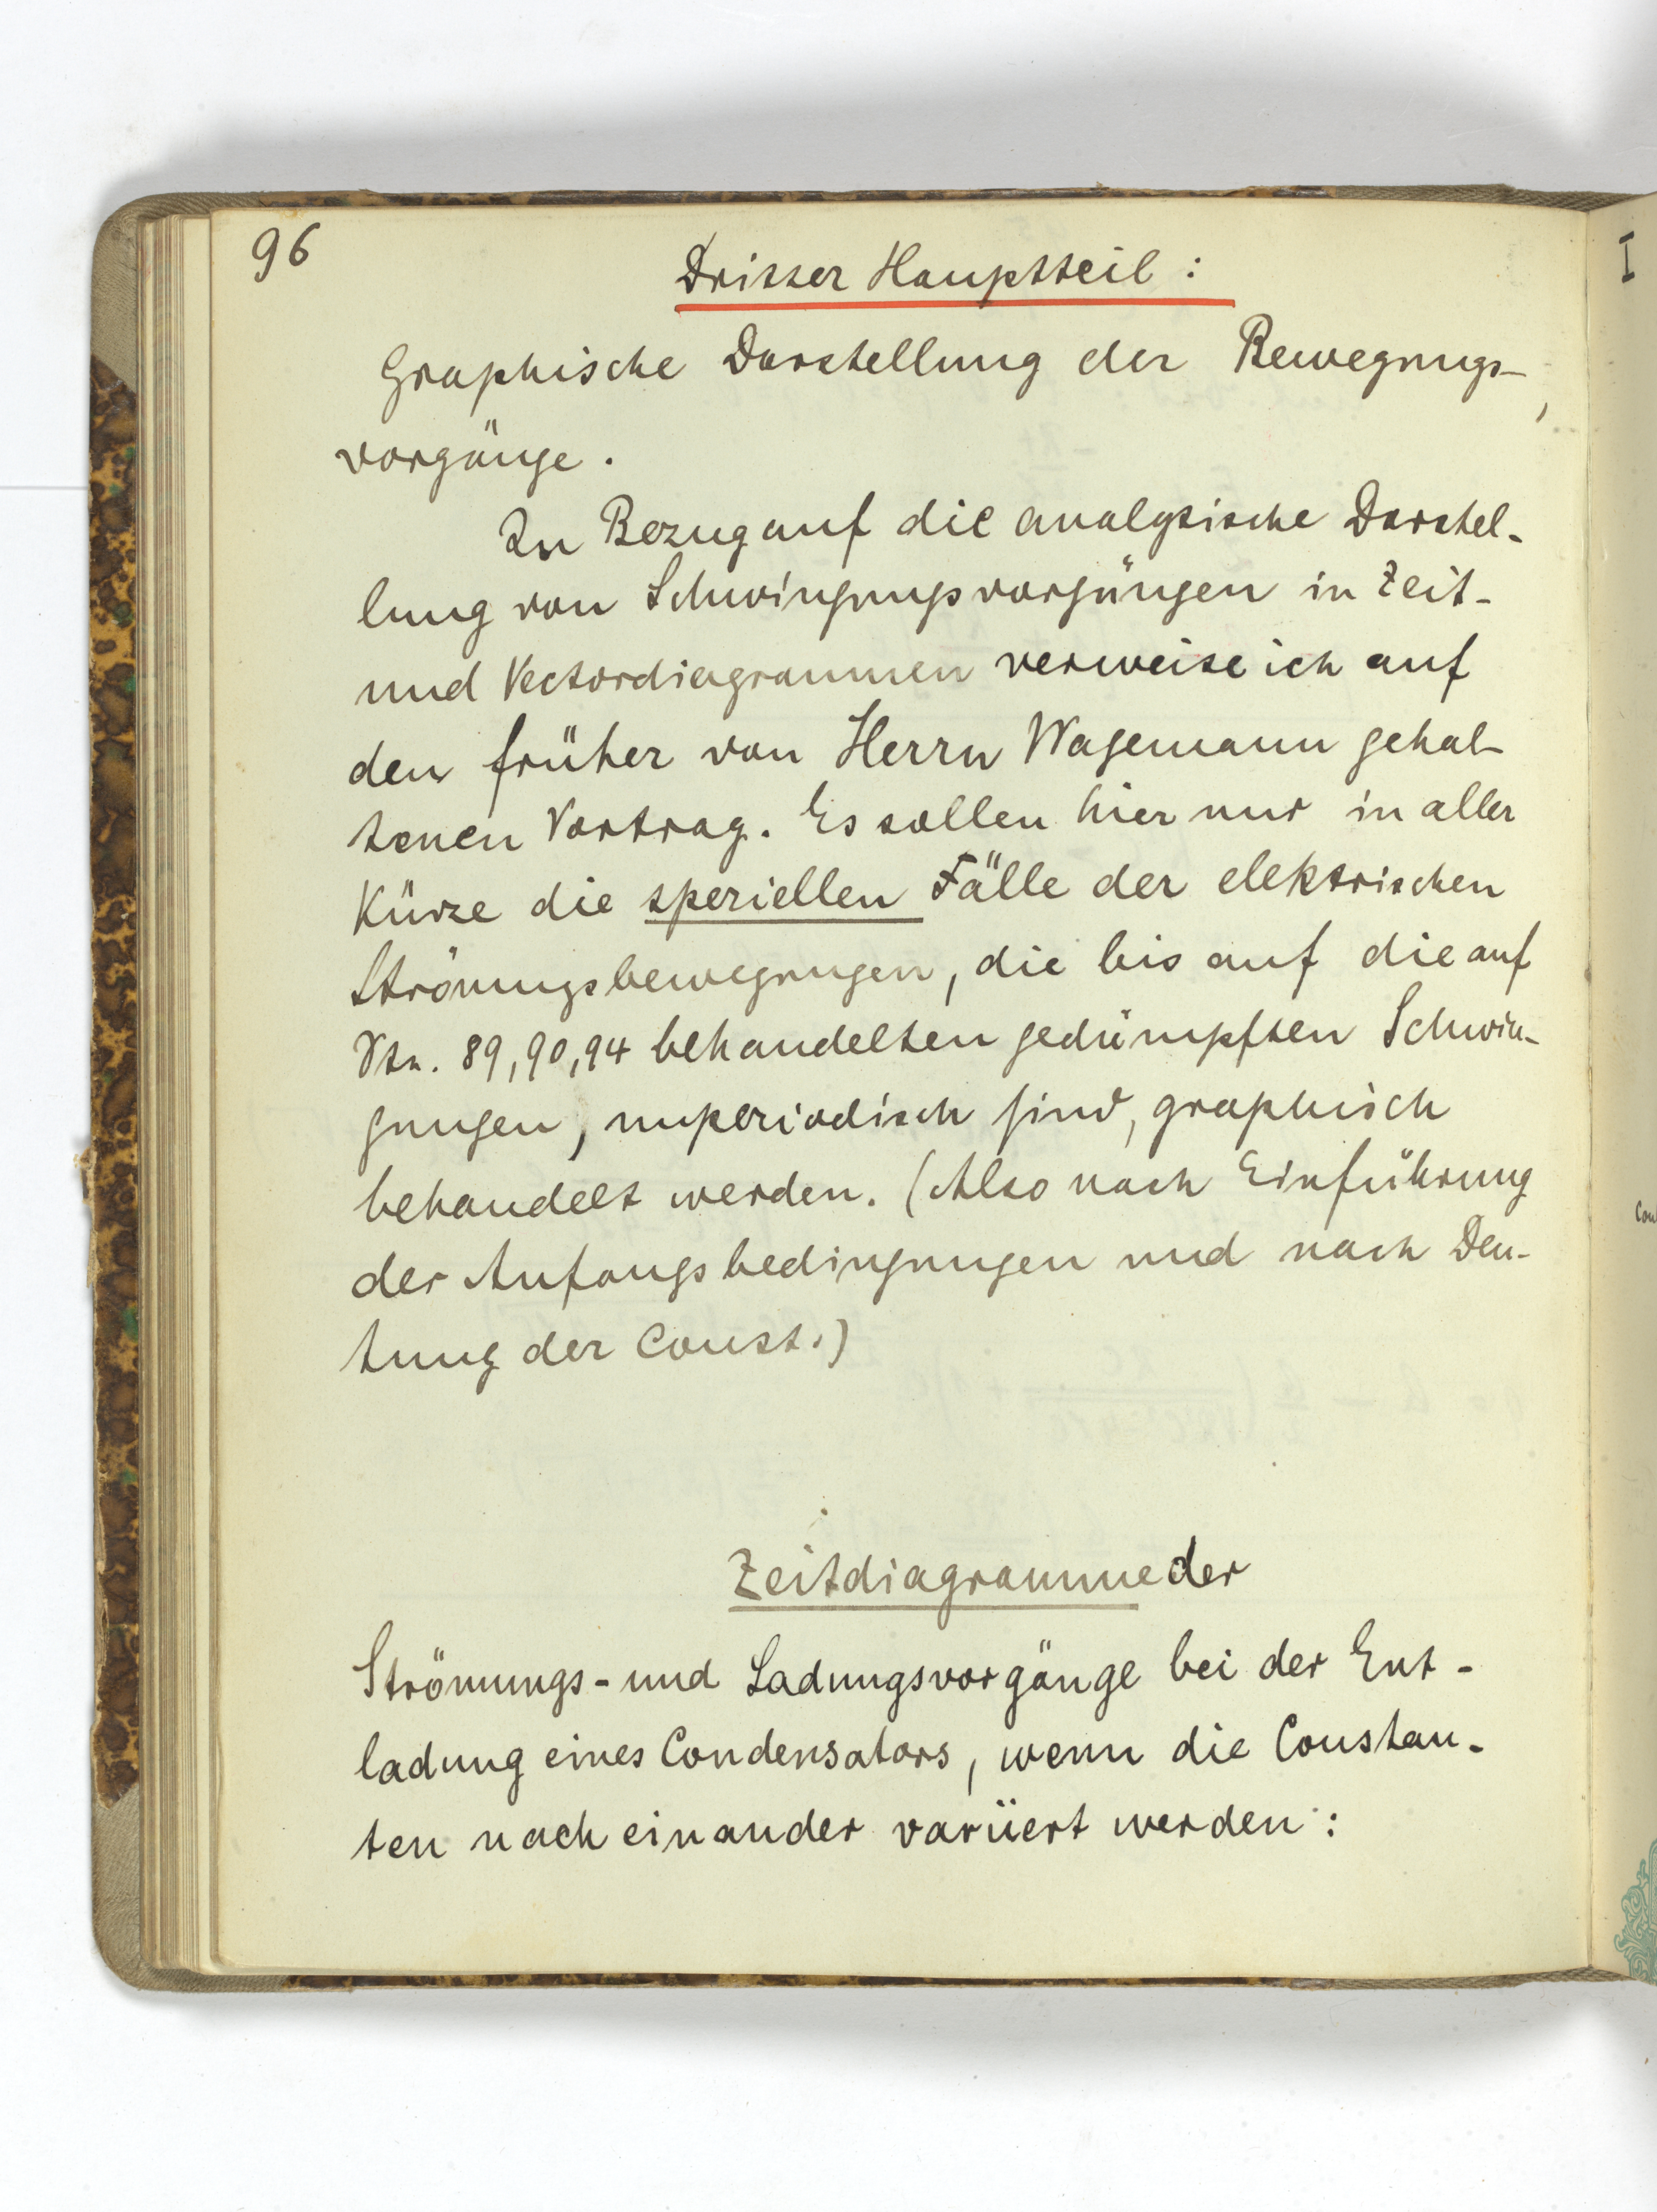 96
Dritter Hauptteil:
Graphische Darstellung der Bewegungs-
vorgänge.
In Bezug auf die analytische Darstel-
lung von Schwingungsvorgängen in Zeit-
und Vectordiagrammen verweise ich auf
den früher von Herrn Wagemann gehal-
tenen Vortrag. Es sollen hier nur in aller
Kürze die speziellen Fälle der elektrischen
Strömungsbewegungen, die bis auf die auf
89, 90, 94 behandelten gedämpften Schwin-
gungen, unperiodisch sind, graphisch
behandelt werden. (Also nach Einführung
der Anfangsbedingungen und nach Deu-
tung der Const.)
Zeitdiagramme der
Strömungs- und Ladungsvorgänge bei der Ent-
ladung eines Condensators, wenn die Constan-
ten nach einander variiert werden:
I